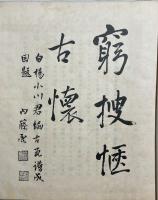 窮搜愜
古懷
白楊小川君編古瓦譜成
因題
內藤虎